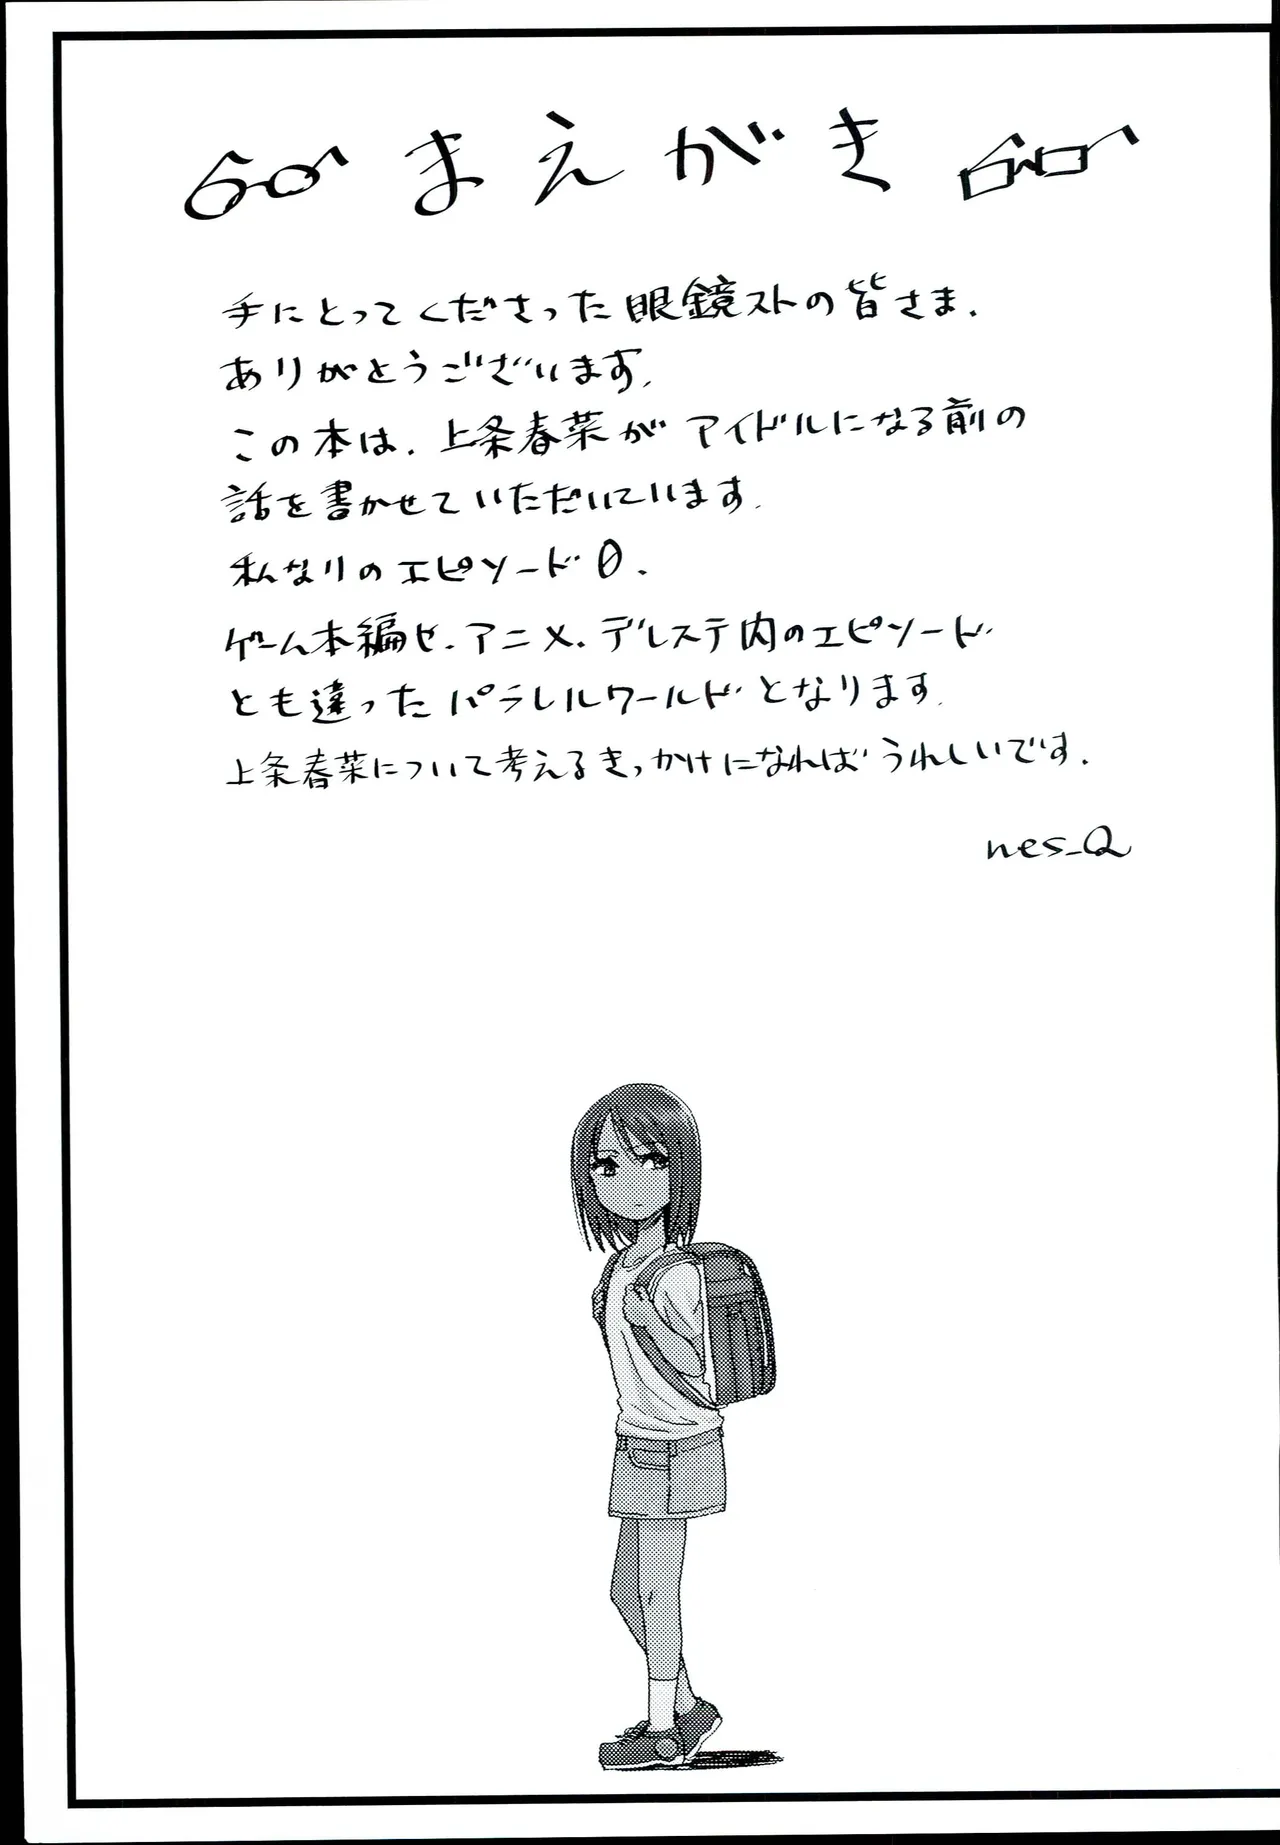 まえがき
手にとってくださった眼鏡ストの皆さま、
ありがとうございます。
この本は、上条春菜がアイドルになる前の
話を書かせていただいています。
私なりのエピソード0.
ゲーム本編や、アニメ、デレステ内のエピソード
とも違ったパラレルワールドとなります。
上条春菜について考えるきっかけになればうれしいです.
nes_Q